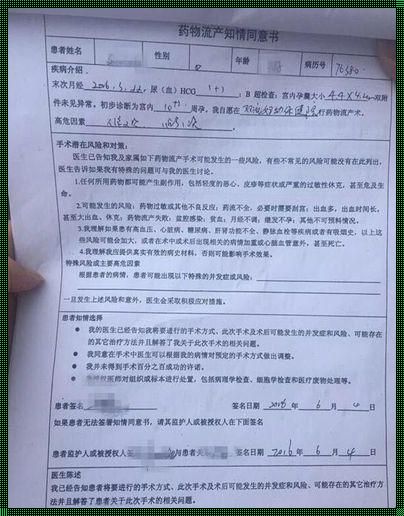 药物流产知情同意书
患者姓名 性别 年龄 病历号 76580
疾病介绍
末次月经 2016.3.22. 尿（血）HCG （+） ；B 超检查：宫内孕囊大小 4.4X4. 双附
件未见异常。初步诊断为宫内 10+1 周孕，我自愿在 行药物流产术。
高危因素
手术潜在风险和对策：
医生已告知我及家属如下药物流产手术可能发生的一些风险，有些不常见的风险可能没有在此列出，
医生告诉如果我有特殊的问题可与我的医生讨论。
1.任何所用药物都可能产生副作用，包括轻度的恶心，皮疹等症状或严重的过敏性休克，甚至危及生
命。
2.可能发生的风险：药物过敏或其他不良反应；药流不全，必要时需要刮宫；出血多，出血时间长，
甚至大出血、休克；药物流产失败；盆腔感染；贫血；月经不调；继发不孕；其他不可预料情况。
3.我理解如果患有高血压、心脏病、糖尿病、肝肾功能不全、静脉血栓等疾病或者有吸烟史，以上这
些风险可能会加大，或者在术中或术后出现相关的病情加重或心脑血管意外，甚至死亡。
4.我理解我应提供真实有效的病史材料，否则可能影响手术效果。
特殊风险或主要高危因素
根据患者的病情，患者可能出现以下特殊的并发症或风险：
一旦发生上述风险和意外，医生会采取积极应对措施。
患者知情选择
● 我的医生已经告知我将要进行的手术方式、此次手术及术后可能发生的并发症和风险、可能存在
的其它治疗方法并且解答了我关于此次手术的相关问题。
● 我同意在手术中医生可以根据我的病情对预定的手术方式做出调整。
● 我并未得到手术百分之百成功的许诺。
● 医师对组织或标本进行处置，包括病理学检查、细胞学检查和医疗废物处理等。
患者签名 签名日期 2016 年 6 月 4 日
如果患者无法签署知情同意书，请其监护人或被授权人在下面签名
患者监护人或被授权人签 与患者关 签名日期 2016 年 6 月 4 日
医生陈述
我已经告知患者将要进行的手术方式、此次手术及术后可能发生的并发症和风险、可能存在的其它治疗方
法并且解答了患者关于此次手术的相关问题。